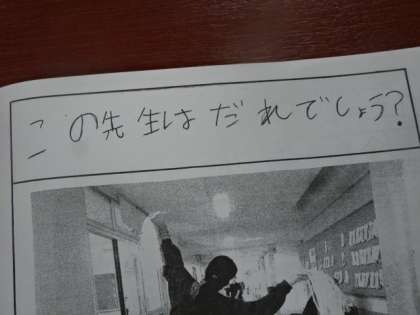 この先生はだれでしょう?